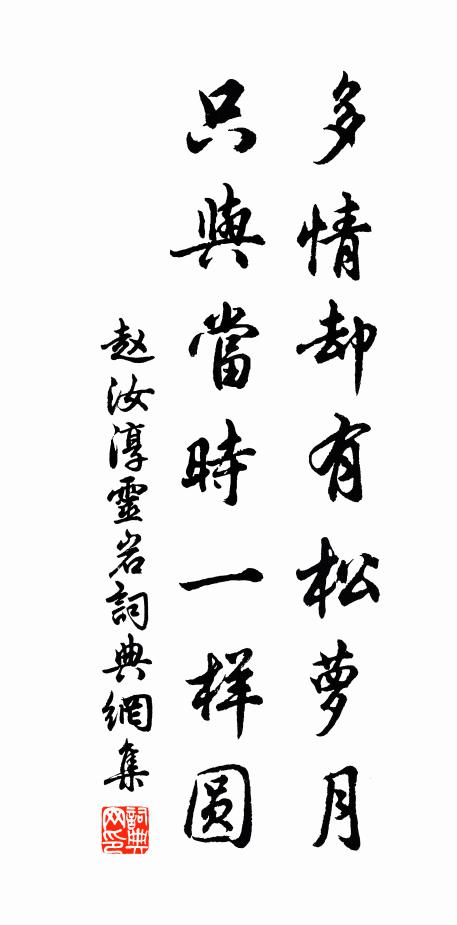 多情却有松萝月
只與當時一样圆
赵汝淳靈岩詞典網集
詞典
网印